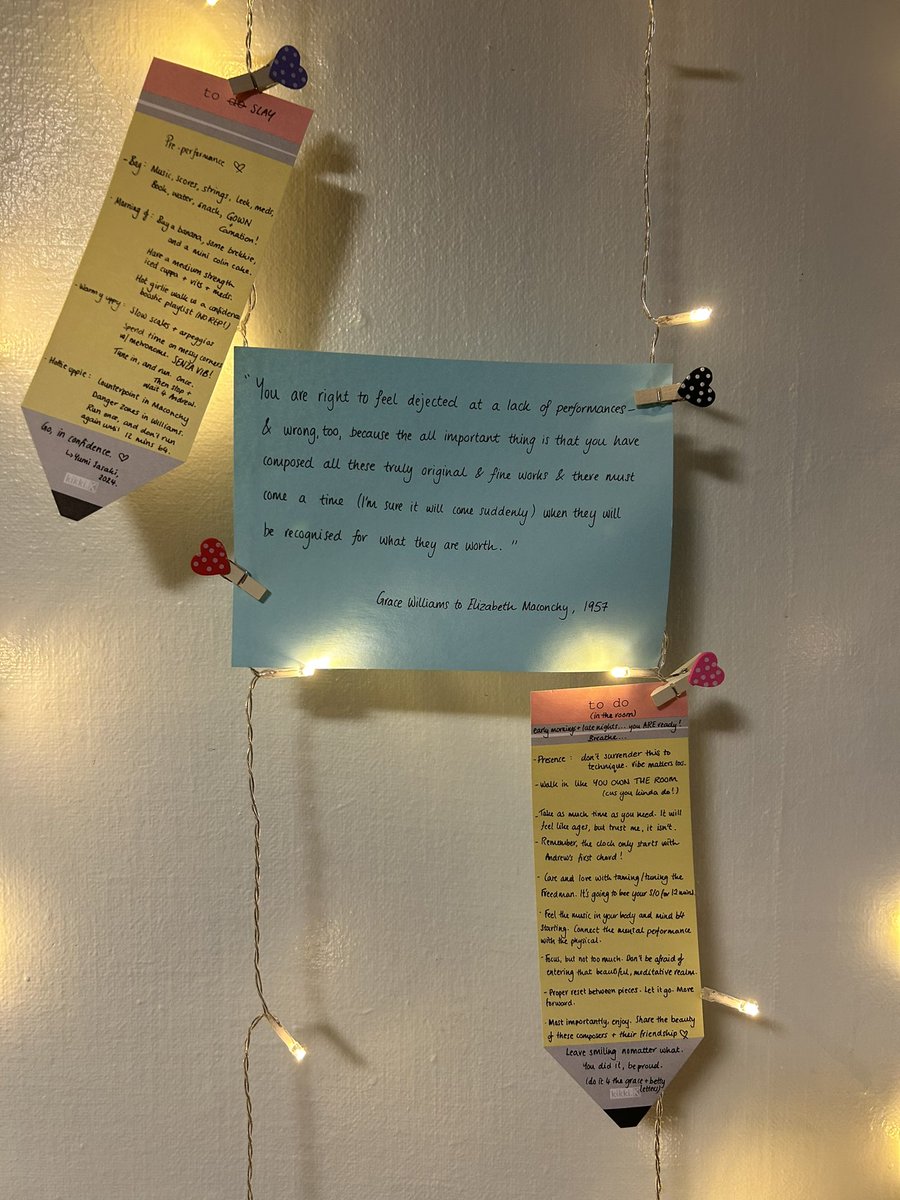 to do SLAY
Pre-performance ♡
- Bag: Music, scores, strings, leek, meds,
Book, water, snack, GOWN
+ Carnation!
- Morning of: Bag a banana, some brekkie,
and a mini colin cake.
Have a medium strength
iced cuppa + vits + meds.
Hot girlie walk w a confidence
boostic playlist (NO REP!)
- Warmy uppy: Slow scales + arpeggios
Spend time on messy corners
w/ metronome. SENZA VIB!
Tune in, and run. Once.
Then stop +
wait 4 Andrew.
- Hattie oppie: Counterpoint in Maconchy
Danger zones in Williams.
Run once, and don't run
again until 12 mins b4.
Go, in confidence. ♡
↳ Yumi Sasaki,
2024.
kikki.K
"You are right to feel dejected at a lack of performances –
& wrong, too, because the all important thing is that you have
composed all these truly original & fine works & there must
come a time (I'm sure it will come suddenly) when they will
be recognised for what they are worth."
Grace Williams to Elizabeth Maconchy, 1957
to do
(in the room)
early mornings + late nights... you ARE ready!
Breathe...
- Presence: don't surrender this to
technique. Vibe matters too.
- Walk in like YOU OWN THE ROOM
(cus you kinda do!)
- Take as much time as you need. It will
feel like ages, but trust me, it isn't.
- Remember, the clock only starts with
Andrew's first chord!
- Care and love with taming/tuning the
Freedman. It's going to love your S/O for 12 mins.
- Feel the music in your body and mind b4
starting. Connect the mental performance
with the physical.
- Focus, but not too much. Don't be afraid of
entering that beautiful, meditative realm.
- Proper reset between pieces. Let it go. Move
forward.
- Most importantly, enjoy. Share the beauty
of these composers + their friendship ♡
Leave smiling nomatter what.
You did it, be proud.
(do it 4 the grace + betty
letters)
kikki.K